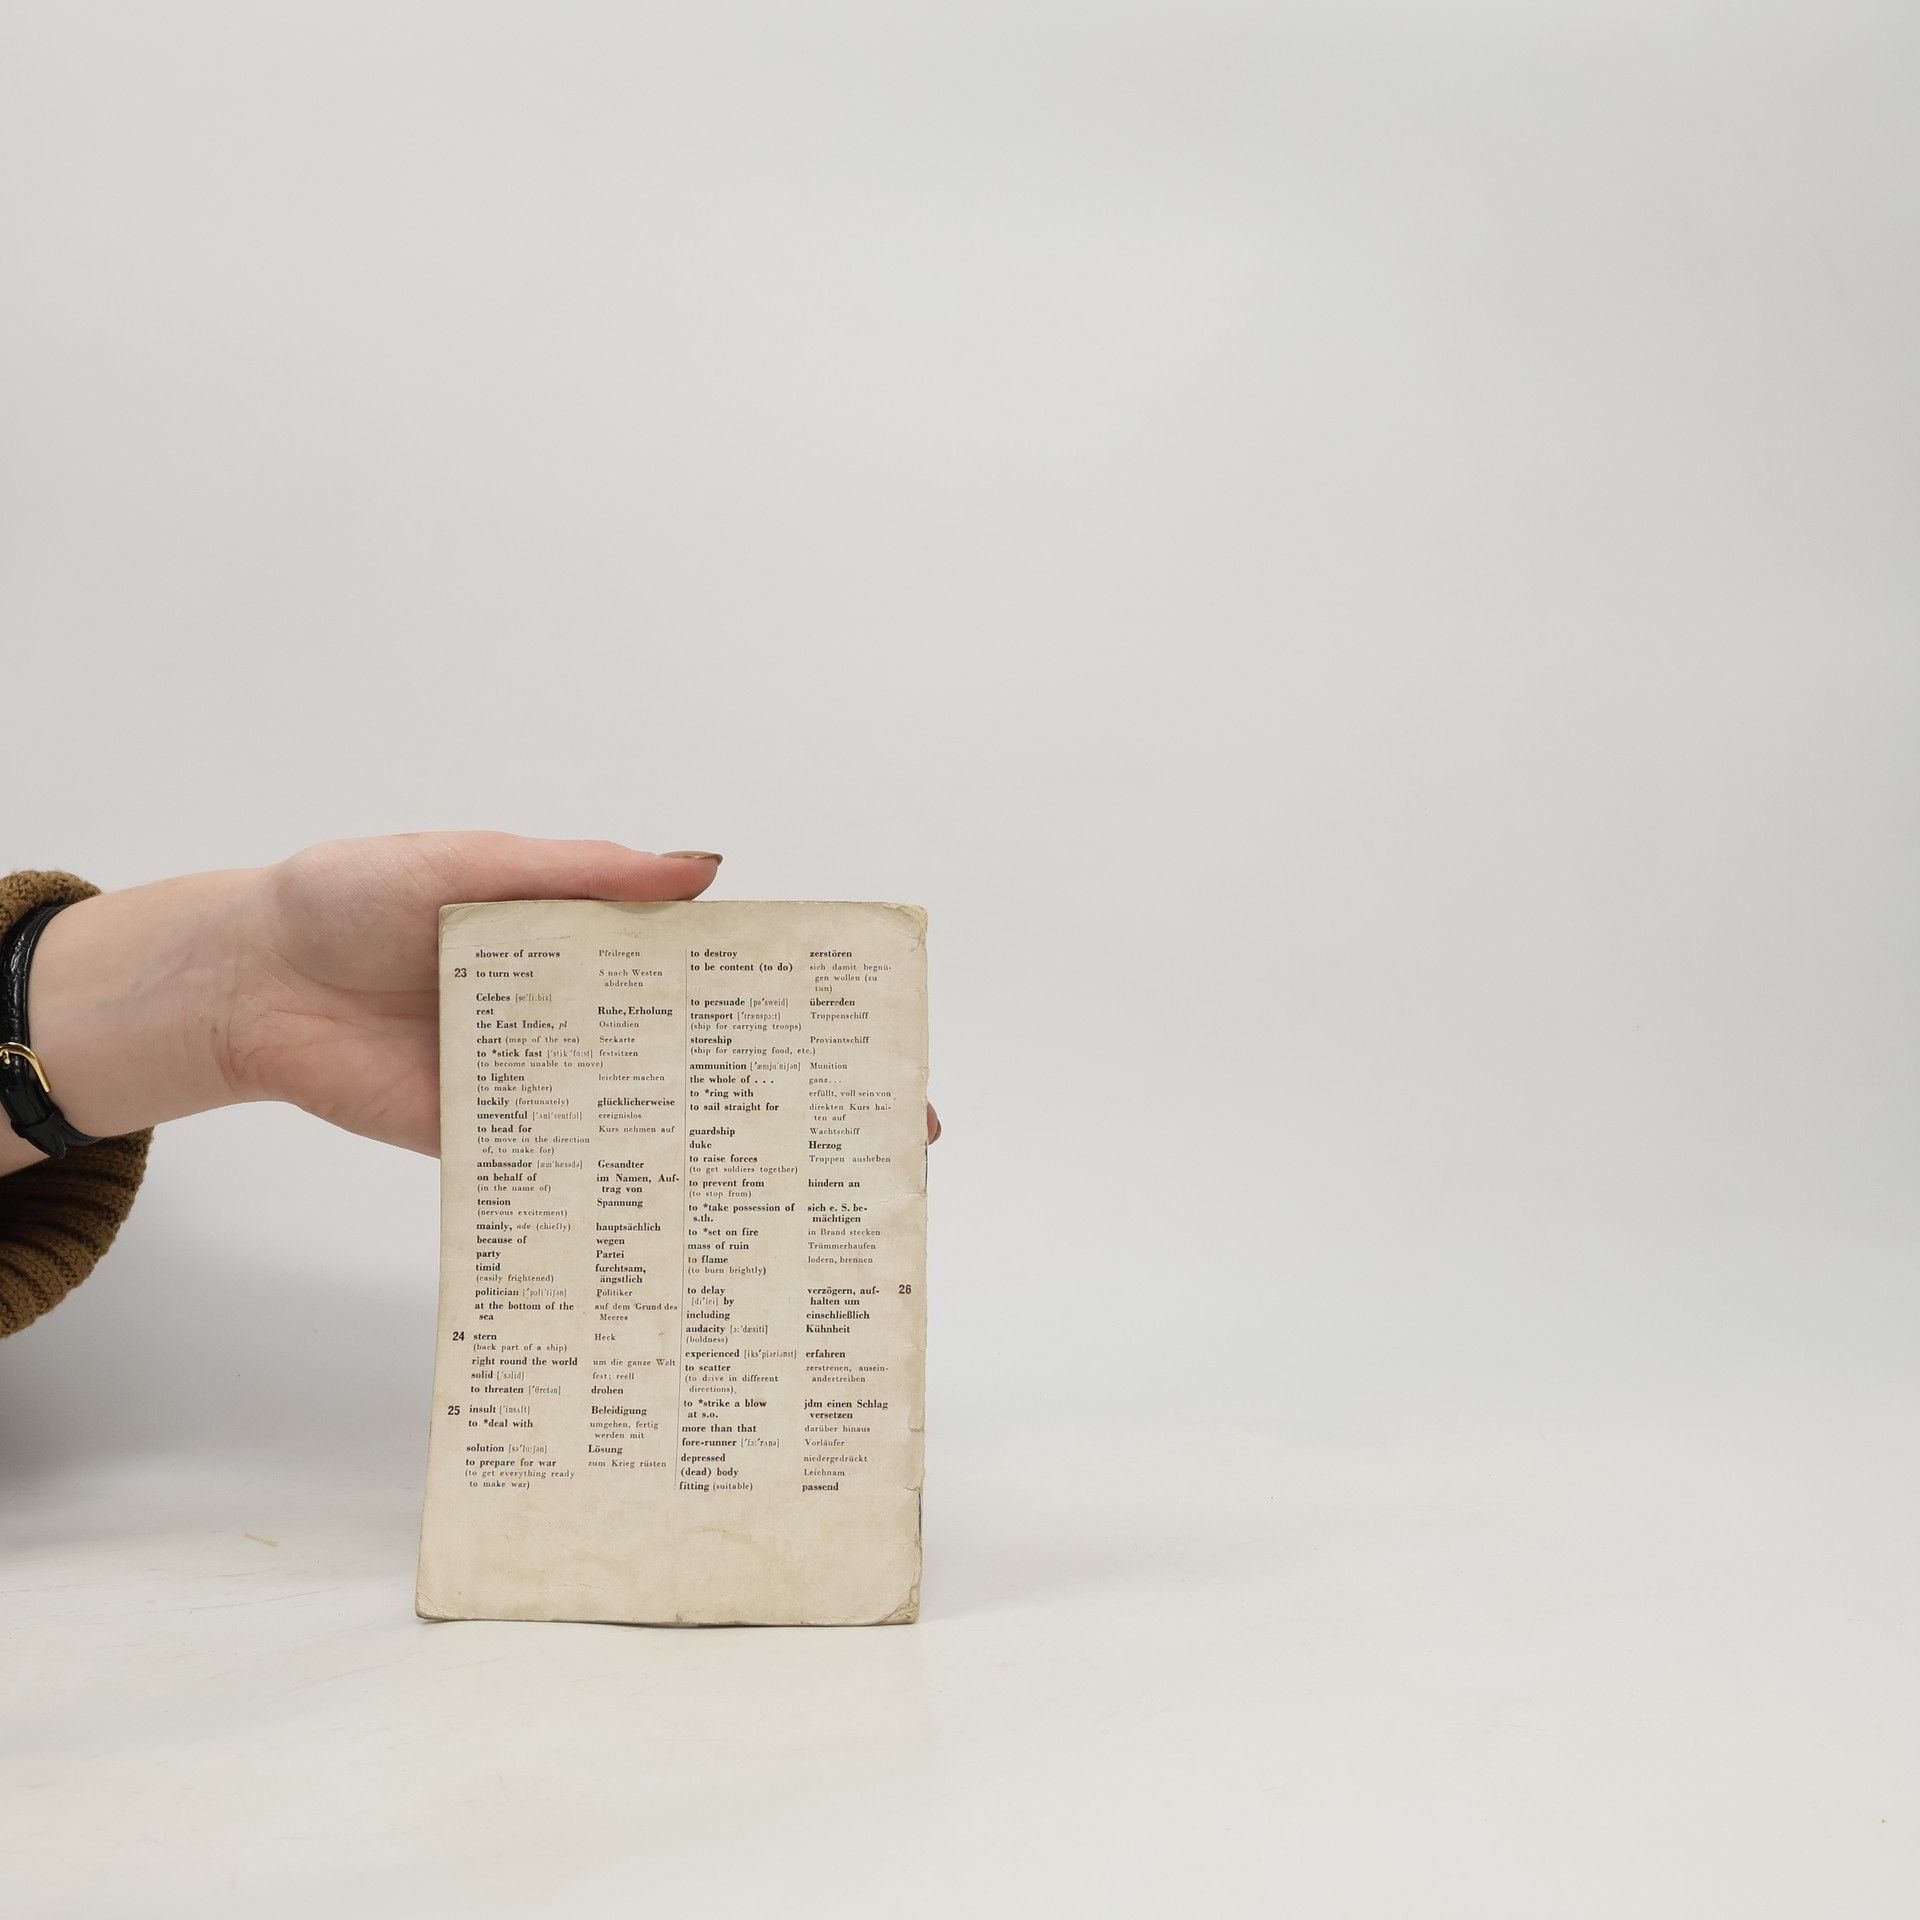 shower of arrows Pfeilregen
23 to turn west S nach Westen
abdrehen
Celebes [se'li:biz]
rest Ruhe, Erholung
the East Indies, pl Ostindien
chart (map of the sea) Seekarte
to *stick fast ['stik 'fɑ:st] festsitzen
(to become unable to move)
to lighten leichter machen
(to make lighter)
luckily (fortunately) glücklicherweise
uneventful ['ʌni'ventful] ereignislos
to head for Kurs nehmen auf
(to move in the direction
of, to make for)
ambassador [æm'bæsədə] Gesandter
on behalf of im Namen, Auf-
(in the name of) trag von
tension Spannung
(nervous excitement)
mainly, adv (chiefly) hauptsächlich
because of wegen
party Partei
timid furchtsam,
(easily frightened) ängstlich
politician [ˌpɔli'tiʃən] Politiker
at the bottom of the auf dem Grund des
sea Meeres
24 stern Heck
(back part of a ship)
right round the world um die ganze Welt
solid ['sɔlid] fest; reell
to threaten ['θretən] drohen
25 insult ['insʌlt] Beleidigung
to *deal with umgehen, fertig
werden mit
solution [sə'lu:ʃən] Lösung
to prepare for war zum Krieg rüsten
(to get everything ready
to make war)
to destroy zerstören
to be content (to do) sich damit begnü-
gen wollen (zu
tun)
to persuade [pə'sweid] überreden
transport ['trænspɔ:t] Truppenschiff
(ship for carrying troops)
storeship Proviantschiff
(ship for carrying food, etc.)
ammunition [ˌæmju'niʃən] Munition
the whole of . . . ganz...
to *ring with erfüllt, voll sein von
to sail straight for direkten Kurs hal-
ten auf
guardship Wachtschiff
duke Herzog
to raise forces Truppen ausheben
(to get soldiers together)
to prevent from hindern an
(to stop from)
to *take possession of sich e. S. be-
s.th. mächtigen
to *set on fire in Brand stecken
mass of ruin Trümmerhaufen
to flame lodern, brennen
(to burn brightly)
to delay verzögern, auf- 26
[di'lei] by halten um
including einschließlich
audacity [ɔ:'dæsiti] Kühnheit
(boldness)
experienced [iks'piəriənst] erfahren
to scatter zerstreuen, ausein-
(to drive in different andertreiben
directions)
to *strike a blow jdm einen Schlag
at s.o. versetzen
more than that darüber hinaus
fore-runner ['fɔ:'rʌnə] Vorläufer
depressed niedergedrückt
(dead) body Leichnam
fitting (suitable) passend